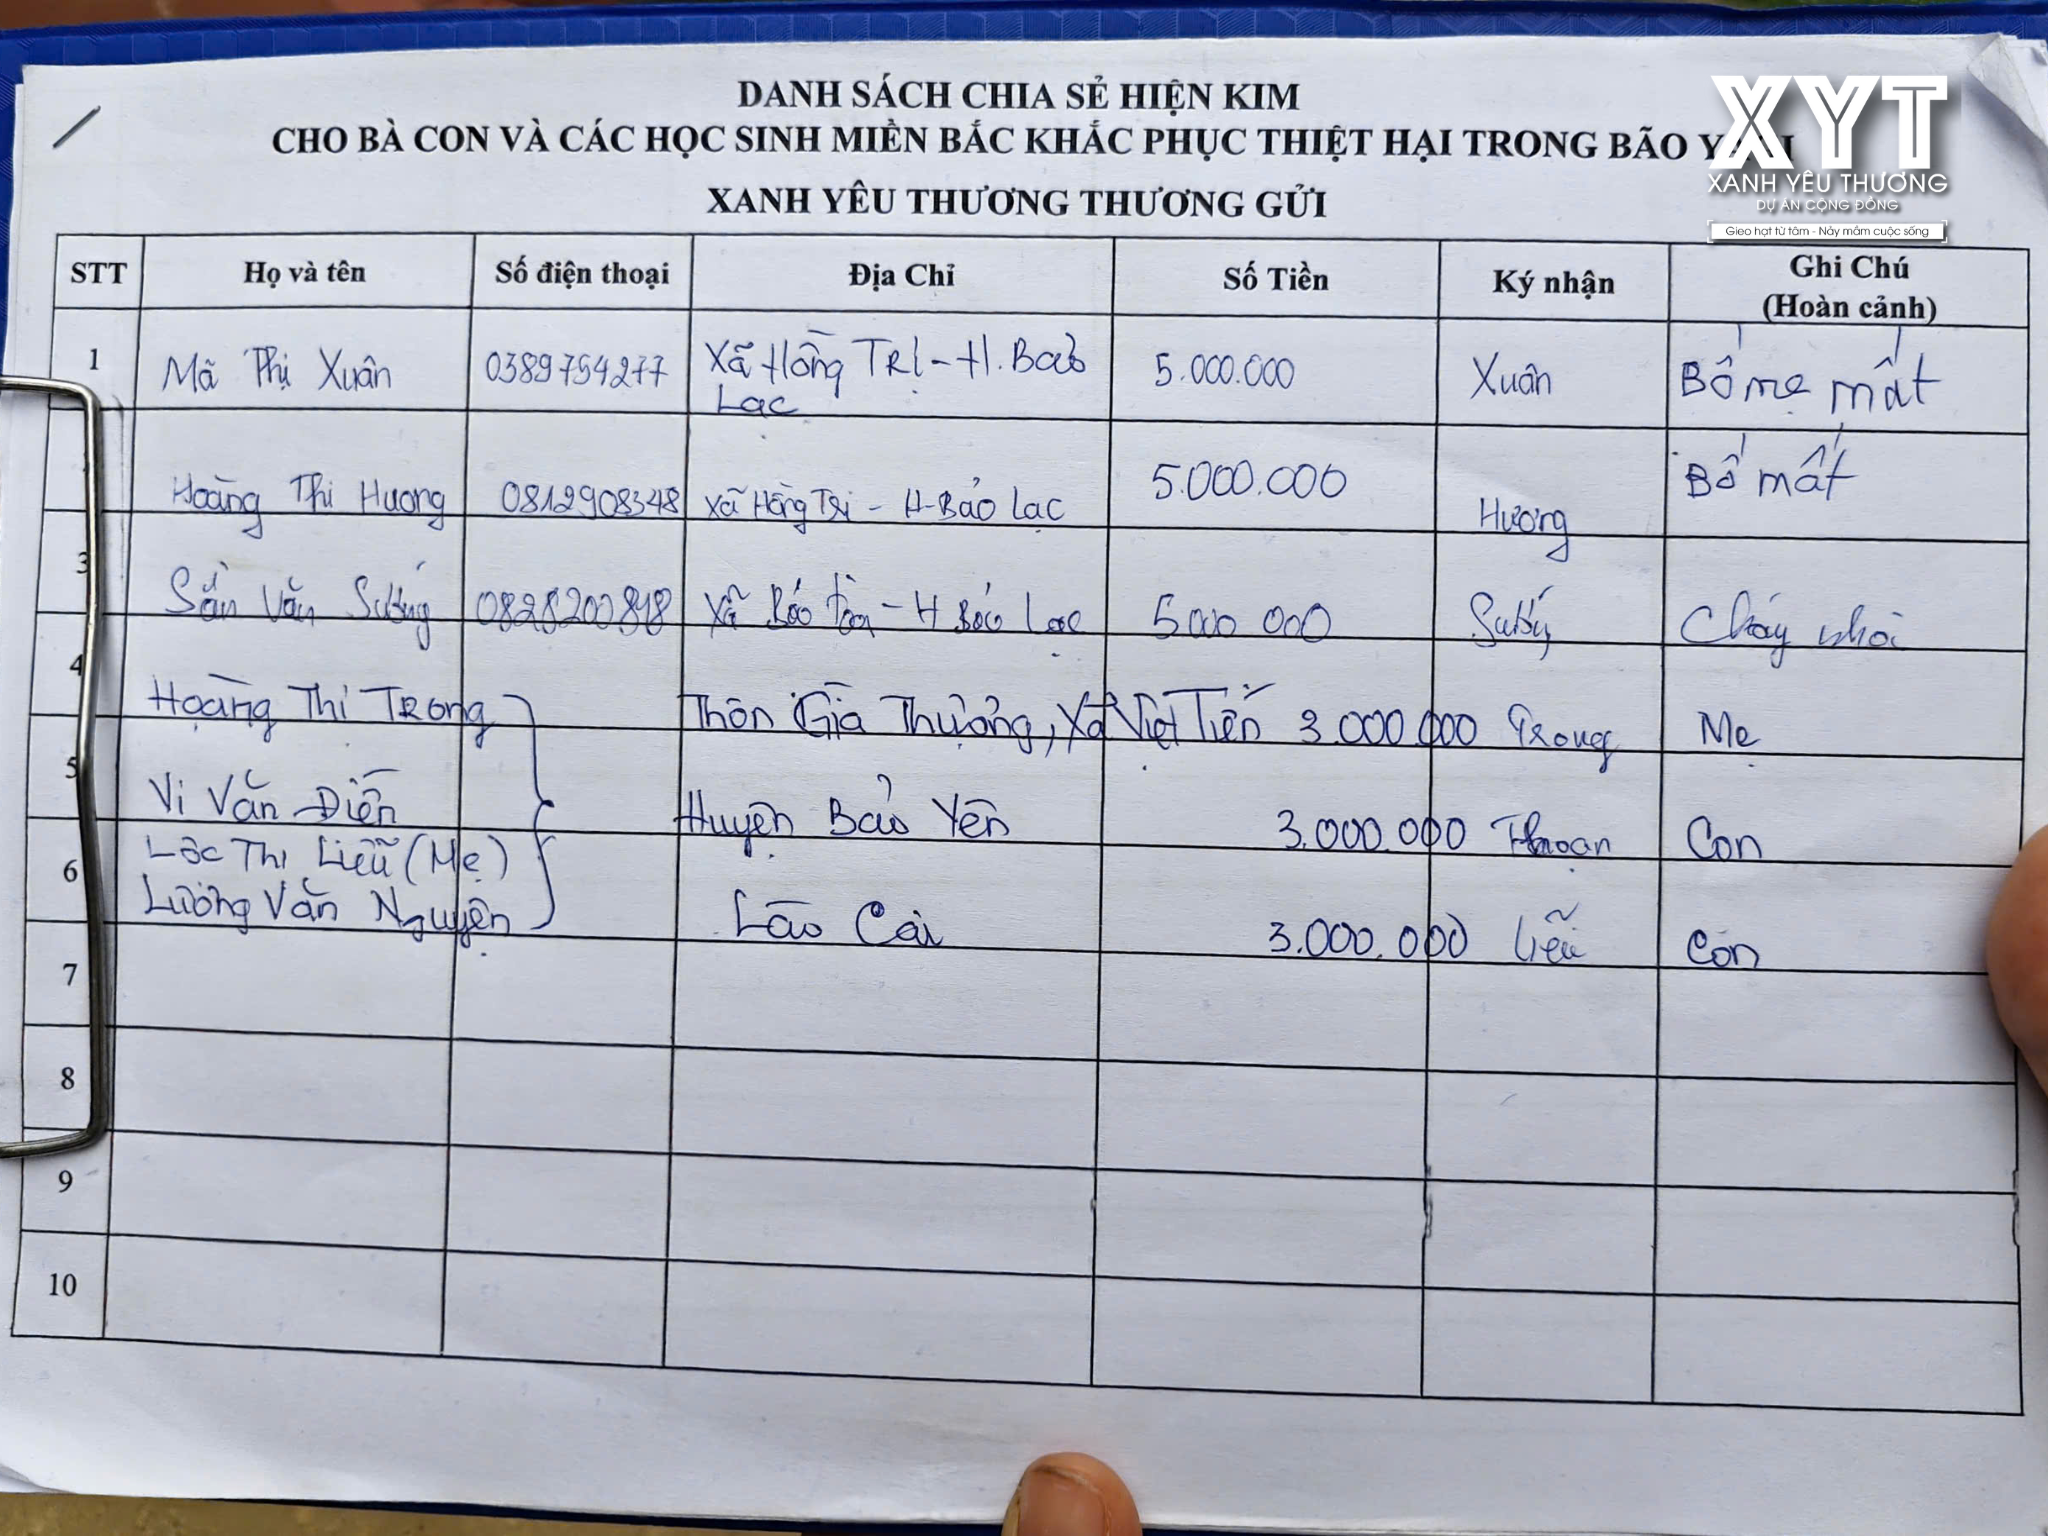 DANH SÁCH CHIA SẺ HIỆN KIM
CHO BÀ CON VÀ CÁC HỌC SINH MIỀN BẮC KHẮC PHỤC THIỆT HẠI TRONG BÃO
XYT
XANH YÊU THƯƠNG
DỰ ÁN CỘNG ĐỒNG
Gieo hạt từ tâm - Nảy mầm cuộc sống
XANH YÊU THƯƠNG THƯƠNG GỬI
STT Họ và tên Số điện thoại Địa Chỉ Số Tiền Ký nhận Ghi Chú
(Hoàn cảnh)
1 Mã Thị Xuân 0389754277 Xã Hồng TRị - H. Bảo 5.000.000 Xuân Bố mẹ mất
Lạc
Hoàng Thị Hương 0812908348 Xã Hồng Trị - H-Bảo Lạc 5.000.000 Hương Bố mất
3 Sần Văn 0828200848 Xã - H Bảo Lạc 5.000 000 Cháy nhà
4 Hoàng Thị TRong Thôn Già Thượng, Xã Việt Tiến 3.000.000 Trong Mẹ
5 Vi Văn Điền Huyện Bảo Yên 3.000.000 Thoạn Con
6 Lộc Thị Liễu (Mẹ)
Lương Văn Nguyện Lào Cai 3.000.000 Liễu Con
7
8
9
10